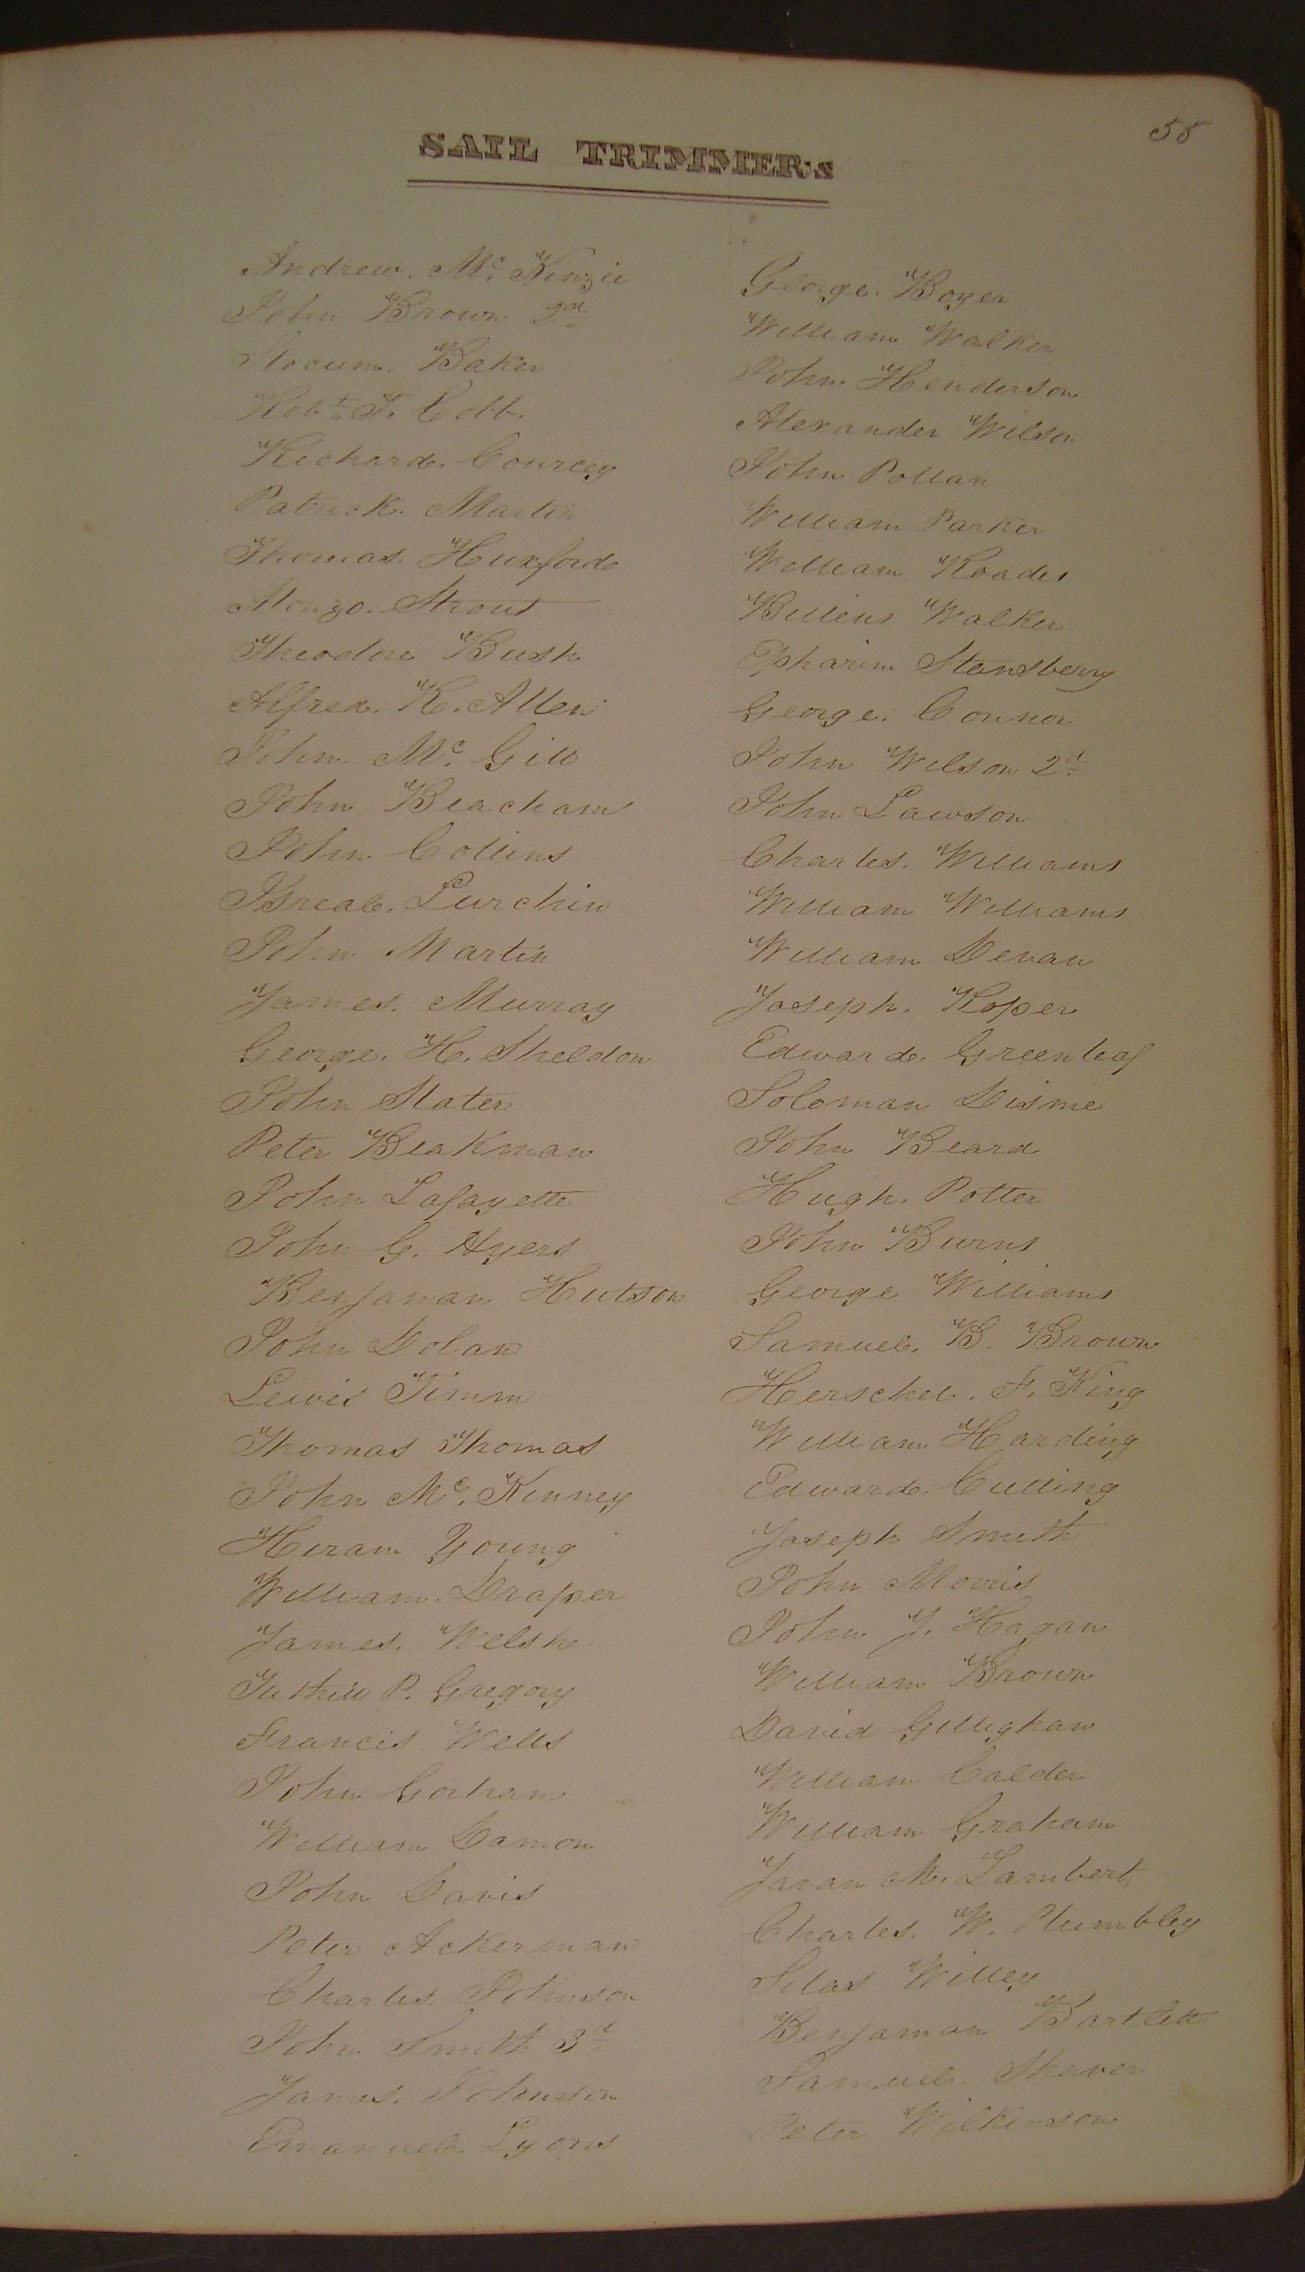 58
SAIL TRIMMERs
Andrew. Mc. Kenzie
John Brown 2d
Slocum. Baker
Robt. F. Cobb.
Richard. Courcey
Patrick. Martin
Thomas. Huxford
Alonzo. Strout
Theodore Bush
Alfred. R. Allen
John. Mc. Gill
John Beacham
John Collins
Isreal. Lurchin
John Martin
James. Murray
George. H. Sheldon
John Slater
Peter Beakman
John Lafayette
John G. Hyers
Benjaman Hutson
John Dolan
Lewis Timm
Thomas Thomas
John Mc. Kenney
Hiram Young
William. Draper
James. Welsh
Tuthill P. Gregory
Francis Wells
John Gorham
William Damon
John Davis
Peter Ackerman
Charles. Johnson
John Smith 3d
James. Johnson
Emanuel. Lyons
George. Boyer
William Walker
John. Henderson
Alexander Wilson
John Pollan
William Parker
William Roades
Billens Walker
Epharim Stansberry
George. Connor
John Wilson 2d
John Lawson
Charles. Williams
William Williams
William Devan
Joseph. Roper
Edward. Greenleaf
Soloman Disme
John Beard
Hugh. Potter
John Burns
George Williams
Samuel. B. Brown
Herschel. F. King
William Harding
Edward. Culling
Joseph Smith
John Morris
John J. Hagan
William Brown
David Gillighan
William Calder
William Graham
Javan M. Lambert
Charles. W. Plumbley
Silas Willey
Benjaman Bartlett
Samuel. Shaver
Peter Wilkenson